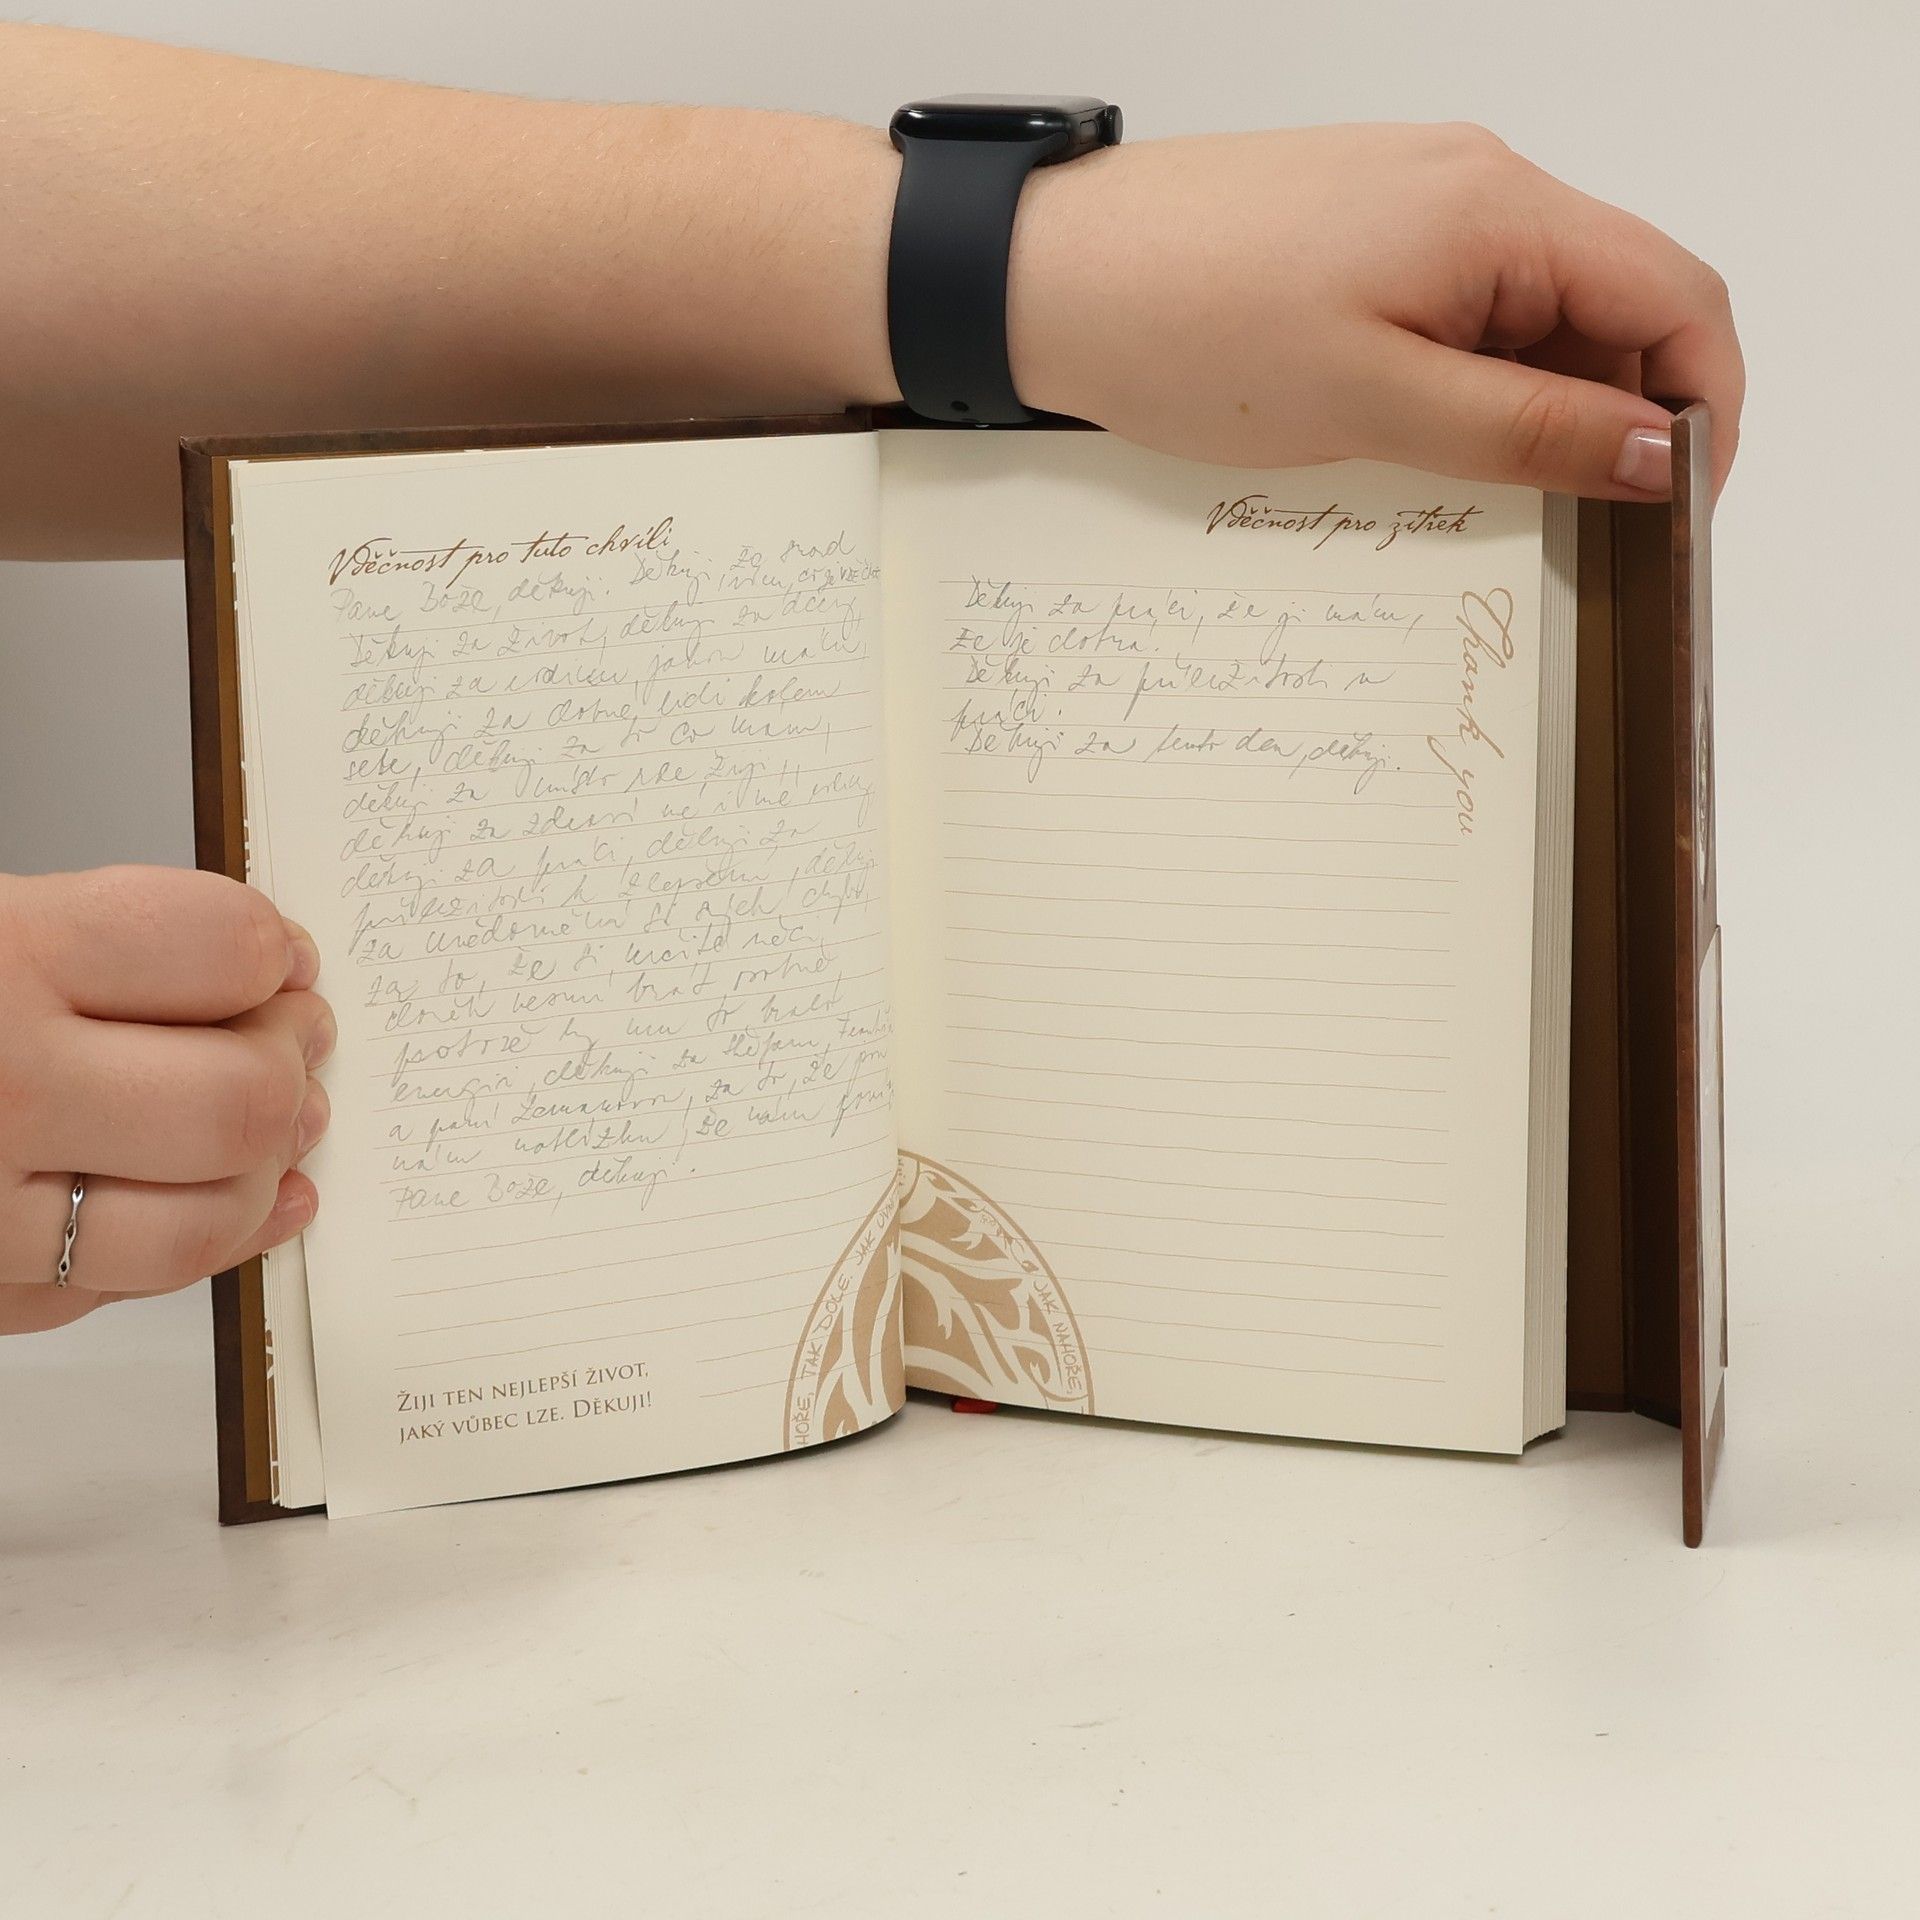 Vděčnost pro tuto chvíli
Pane Bože, děkuji. Děkuji za
Děkuji za život, děkuji za dcery,
děkuji za rodinu, jakou mám,
děkuji za dobré lidi kolem
sebe, děkuji za to co mám,
děkuji za místo kde žiji,
děkuji za zdraví mé i mé rodiny
děkuji za práci, děkuji za
příležitosti k zlepšení, děkuji
za uvědomění si svých chyb,
za to, že si určité věci
člověk nesmí brát osobně,
protože by mu to bralo
energii, děkuji za
a paní Zemanovou, za to, že
nám že nám
Pane Bože, děkuji.
Žiji ten nejlepší život,
jaký vůbec lze. Děkuji!
HOŘE, TAK DOLE. JAK UVN
Vděčnost pro zítřek
Děkuji za práci, že ji mám,
že je dobrá.
Děkuji za příležitosti v
práci.
Děkuji za tento den, děkuji.
Thank you
JAK NAHOŘE,